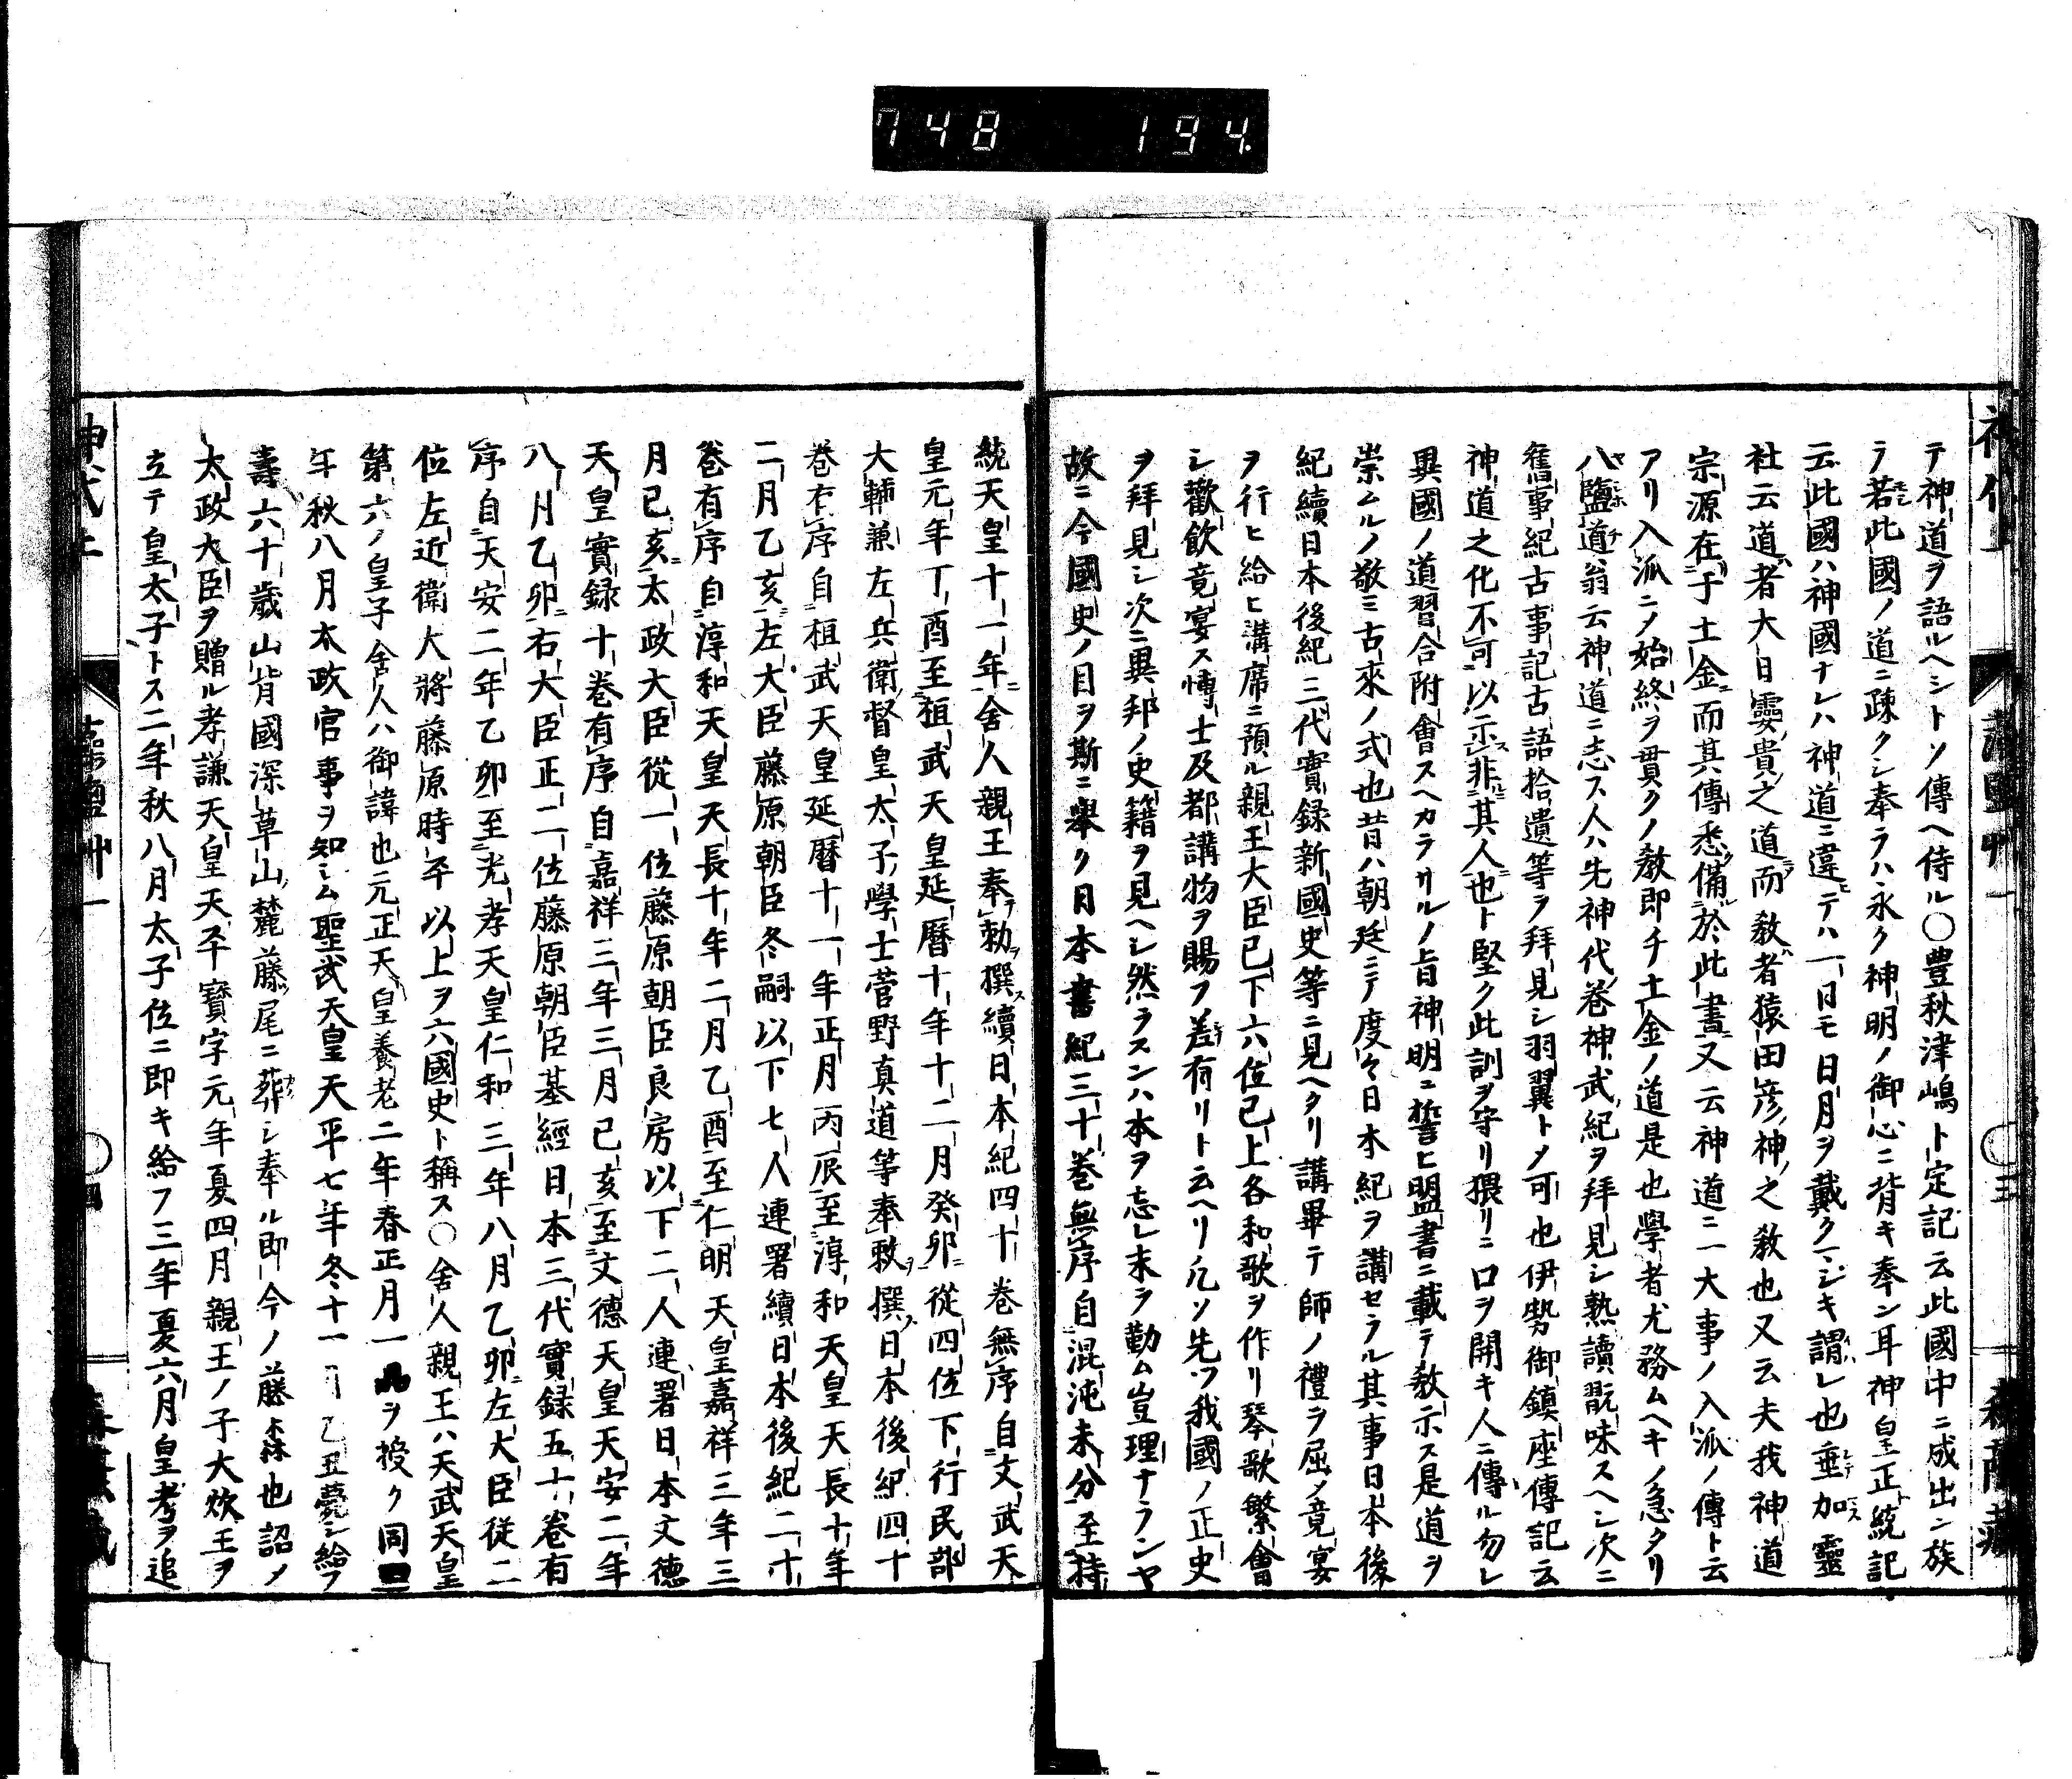 748 194.
テ神道ヲ語ルヘシトソ傳ヘ侍ル〇豊秋津嶋ト定記云此國中ニ成出ン族
テ若此國ノ道ニ疎クシ奉ラハ永ク神明ノ御心ニ背キ奉ン耳神皇正統記
云此國ハ神國ナレハ神道ニ違テハ一日モ日月ヲ戴クマジキ謂レ也垂加靈
社云道者大日孁貴之道而教者猿田彦神之教也又云夫我神道
宗源在于土金而其傳悉備於此書又云神道ニ一大事ノ入派ノ傳ト云
アリ入派ニノ始終ヲ貫クノ教即チ土金ノ道是也學者尤務ムヘキノ急タリ
八鹽道翁云神道ニ志ス人ハ先神代巻神武紀ヲ拜見シ熟讀翫味スヘシ次ニ
舊事紀古事記古語拾遺等ヲ拜見シ羽翼トメ可也伊勢御鎮座傳記云
神道之化不可以示非其人也ト堅ク此訓ヲ守リ猥リニ口ヲ開キ人ニ傳ル勿レ
異國ノ道習合附會スヘカラサルノ旨神明ニ誓ヒ盟書ニ載テ教示ス是道ヲ
崇ムルノ敬ミ古來ノ式也昔ハ朝廷ニテ度々日本紀ヲ講セラル其事日本後
紀續日本後紀三代實録新國史等ニ見ヘタリ講畢テ師ノ禮ヲ屈メ竟宴
ヲ行ヒ給ヒ講席ニ預ル親王大臣已下六位已上各和歌ヲ作リ琴歌繁會
シ歡飲竟宴ス博士及都講物ヲ賜フ差有リト云ヘリ凡ソ先ツ我國ノ正史
ヲ拜見シ次ニ異邦ノ史籍ヲ見ヘシ然ラスンハ本ヲ忘レ末ヲ勤ム豈理ナランヤ
故ニ今國史ノ目ヲ斯ニ舉ク日本書紀三十巻無序自混沌未分至持
統天皇十一年舍人親王奉勅撰續日本紀四十巻無序自文武天
皇元年丁酉至桓武天皇延暦十年十二月癸卯從四位下行民部
大輔兼左兵衛督皇太子學士菅野真道等奉敕撰日本後紀四十
巻有序自桓武天皇延暦十一年正月丙辰至淳和天皇天長十年
二月乙亥左大臣藤原朝臣冬嗣以下七人連署續日本後紀二十
巻有序自淳和天皇天長十年二月乙酉至仁明天皇嘉祥三年三
月已亥太政大臣從一位藤原朝臣良房以下二人連署日本文德
天皇實録十巻有序自嘉祥三年三月已亥至文德天皇天安二年
八月乙卯右大臣正二位藤原朝臣基經日本三代實録五十巻有
序自天安二年乙卯至光孝天皇仁和三年八月乙卯左大臣從二
位左近衛大將藤原時平以上ヲ六國史ト稱ス〇舍人親王ハ天武天皇
第六ノ皇子舍人ハ御諱也元正天皇養老二年春正月一品ヲ授ク同四
年秋八月太政官事ヲ知シム聖武天皇天平七年冬十一月乙丑薨シ給フ
壽六十歳山背國深草山麓藤尾ニ葬シ奉ル即今ノ藤森也詔メ
太政大臣ヲ贈ル孝謙天皇天平寶字元年夏四月親王ノ子大炊王ヲ
立テ皇太子トス二年秋八月太子位ニ即キ給フ三年夏六月皇考ヲ追